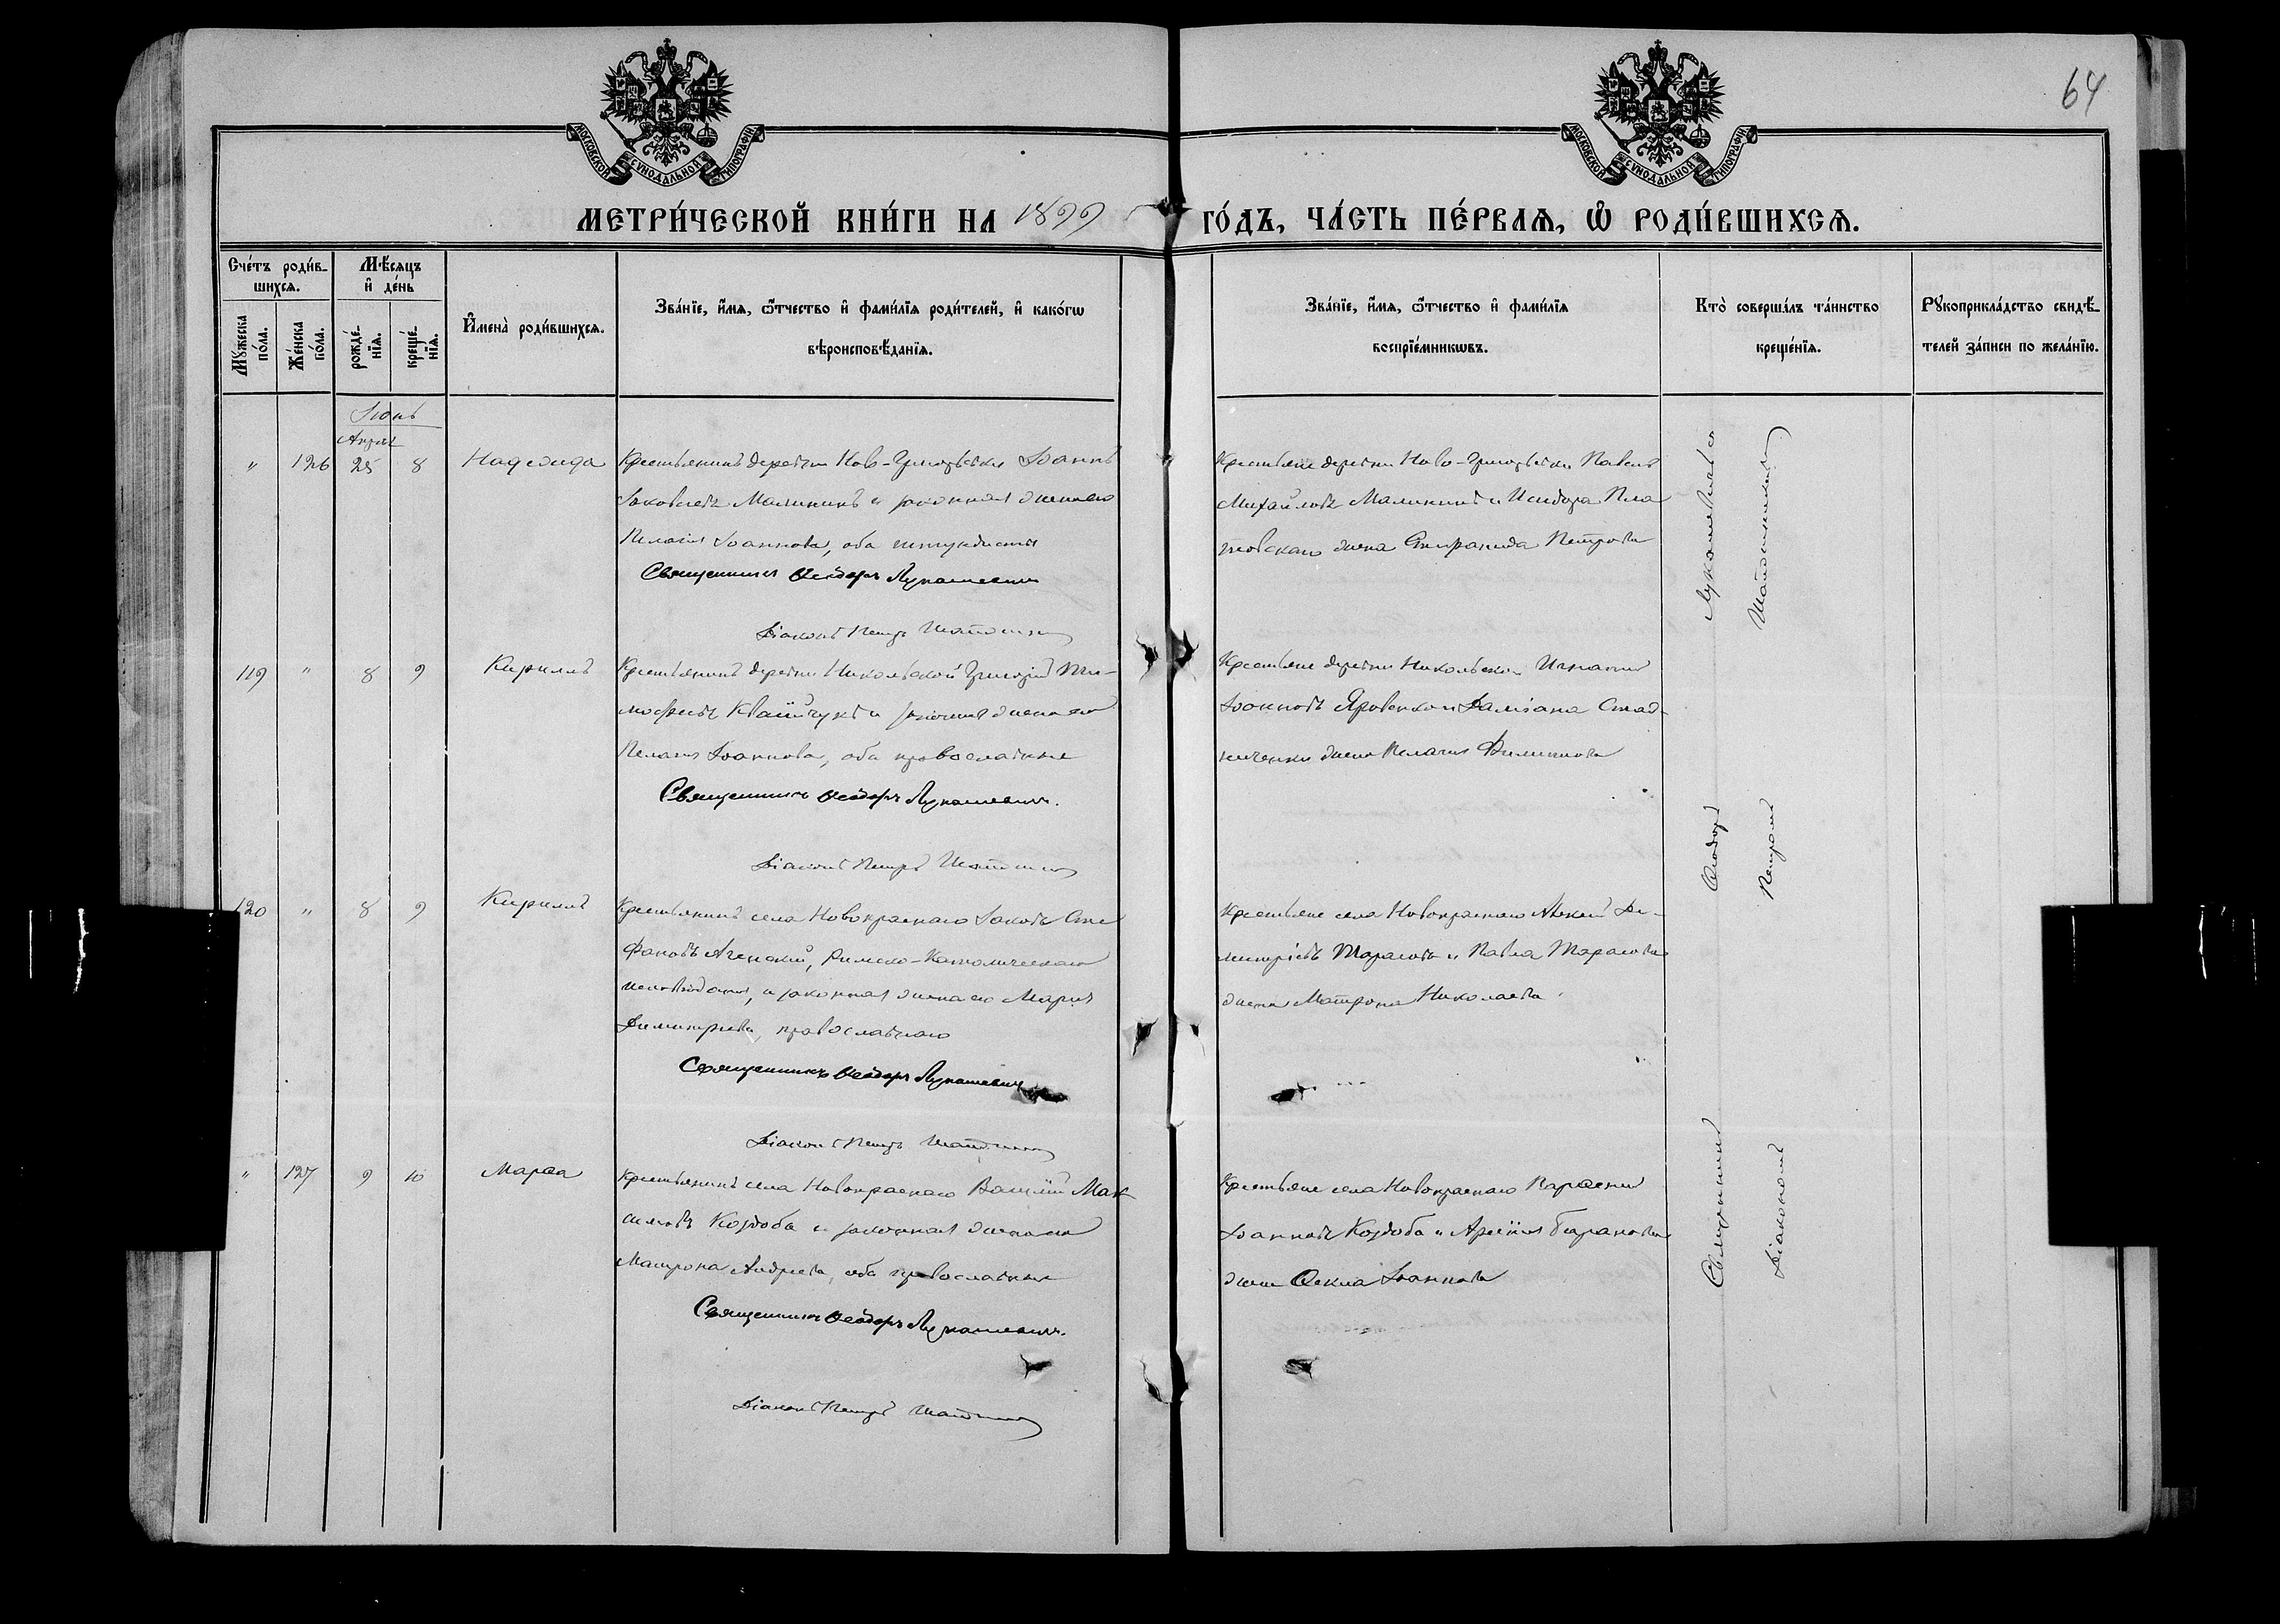 64
МОСКОВСКОЙ СУНОДАЛЬНОЙ ТИПОГРАФІИ
МОСКОВСКОЙ СУНОДАЛЬНОЙ ТИПОГРАФІИ
МЕТРИ́ЧЕСКОЙ КНИ́ГИ НА 1899 ГО́ДЪ, ЧА́СТЬ ПЕ́РВАѦ, Ѡ҆ РОДИ́ВШИХСѦ.
Сче́тъ роди́в-
шихсѧ.
Мꙋжеска
по́ла.
Же́нска
по́ла.
Мѣ́сѧцъ
и҆ де́нь
рожде́-
нїѧ.
креще́-
нїѧ.
И҆мена̀ роди́вшихсѧ.
Зва́нїе, и҆́мѧ, ѻ҆́тчество и҆ фами́лїѧ роди́телей, и҆ како́гѡ
вѣроисповѣ́данїѧ.
Зва́нїе, и҆́мѧ, ѻ҆́тчество и҆ фами́лїѧ
воспрїе́мникѡвъ.
Кто̀ соверши́лъ та́инство
креще́нїѧ.
Рꙋкоприкла́дство свидѣ́-
телей за́писи по жела́нїю.
Іюнь
Апрѣл
" 126 25 8 Надежда
Крестьянинъ деревни Ново-Григорьевки Іоаннъ
Іаковлевъ Малининъ и законная жена его
Пелагія Іоаннова, оба штундисты
Священникъ Ѳеодоръ Лукашевичъ
Діаконъ Петръ
Крестьяне деревни Ново-Григорьевки Павелъ
Михайловъ Малининъ и Исидора Пла
товскаго жена Петрова
119 " 8 9 Кириллъ
Крестьянинъ деревни Никольской Григорій Ти-
мофеевъ Квашчукъ и законная жена его
Пелагія Іоаннова, оба православные
Священникъ Ѳеодоръ Лукашевичъ.
Діаконъ Петръ
Крестьяне деревни Никольской Игнатій
Іоанновъ Яровенко и Даміана Стад-
ниченки жена Пелагія Филиппова
120 " 8 9 Кириллъ
Крестьянинъ села Новокраснаго Іаковъ Сте
фановъ Аченскій, Римско-Католическаго
исповѣданія, и законная жена его Марія
Димитріева, православнаго
Священникъ Ѳеодоръ Лукашевичъ
Діаконъ Петръ
Крестьяне села Новокраснаго Алексій Ди-
митріевъ Тарасовъ и Павла Тарасова
жена Матрона Николаева
" 127 9 10 Марѳа
Крестьянинъ села Новокраснаго Василій Мак
симовъ Коздоба и законная жена его
Матрона Андреева, оба православные
Священникъ Ѳеодоръ Лукашевичъ.
Діаконъ Петръ
Крестьяне села Новокраснаго Парѳеній
Іоанновъ Коздоба и Арсенія Баранова
жена Ѳекла Іоаннова
Священникъ Ѳеодоръ Лукашевичъ
Діакономъ Петромъ